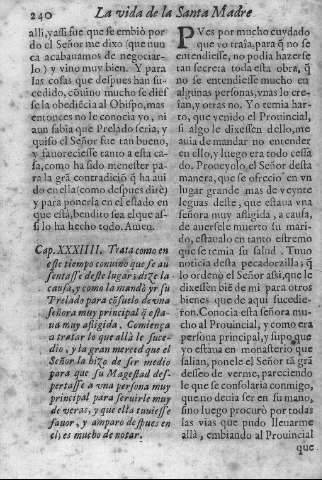 240
La vida de la Santa Madre
alli, y assi fue que se embiò por
do el Señor me dixo (que nun
ca acabauamos de negociar-
lo) y vino muy bien. Y para
las cosas que despues han su-
cedido, cõuino mucho se dies
se la obediẽcia al Obispo, mas
entonces no le conocia yo, ni
aun sabia que Prelado seria, y
quiso el Señor fue tan bueno,
y fauoreciesse tanto a esta ca-
sa, como ha sido menester pa-
ra la grã contradiciõ q̃ ha aui
do en ella (como despues dirè)
y para ponerla en el estado en
que està, bendito sea el que as-
si lo ha hecho todo. Amen.
Cap. XXXIIII. Trata como en
este tiempo conuino que se au
sentasse deste lugar, dize la
causa, y como la mandò yr su
Prelado para cõsuelo de vna
señora muy principal q̃ esta-
ua muy afligida. Comiença
a tratar lo que allà le suce-
dio, y la gran merced que el
Señor la hizo de ser medio
para que su Magestad des-
pertasse a vna persona muy
principal para seruirle muy
de veras, y que ella tuuiesse
fauor, y amparo despues en
el, es mucho de notar.
PVes por mucho cuydado
que yo traîa para q̃ no se
entendiesse, no podia hazerse
tan secreta toda esta obra, q̃
no se entendiesse mucho en
algunas personas, vnas lo cre-
îan, y otras no. Yo temia har-
to, que venido el Prouincial,
si algo le dixessen dello, me
auia de mandar no entender
en ello, y luego era todo cessa
do. Proueyolo el Señor desta
manera, que se ofrecio en vn
lugar grande mas de veynte
leguas deste, que estaua vna
señora muy afligida, a causa,
de auersele muerto su mari-
do, estaualo en tanto estremo
que se temia su salud. Tuuo
noticia desta pecadorzilla, q̃
lo ordenò el Señor assi, que le
dixessen biẽ de mi para otros
bienes que de aqui sucedie-
ron. Conocia esta señora mu-
cho al Prouincial, y como era
persona principal, y supo, que
yo estaua en monasterio que
salian, ponele el Señor tã grã
desseo de verme, pareciendo
le que se consolaria conmigo,
que no deuia ser en su mano,
sino luego procurò por todas
las vias que pudo lleuarme
allà, embiando al Prouincial
que